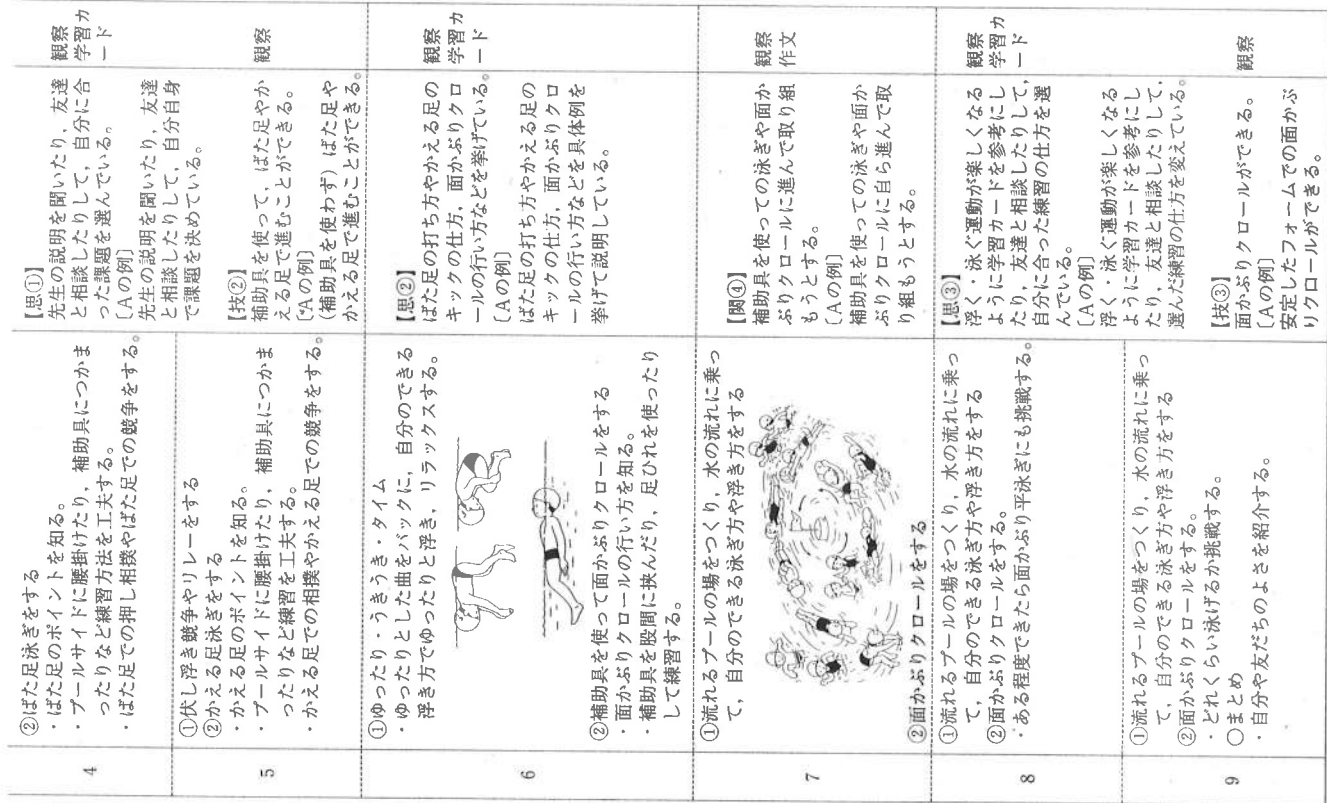 4
②ばた足泳ぎをする
・ばた足のポイントを知る。
・プールサイドに腰掛けたり，補助具につかま
ったりなど練習方法を工夫する。
・ばた足での押し相撲やばた足での競争をする。
【思①】
先生の説明を聞いたり，友達
と相談したりして，自分に合
った課題を選んでいる。
〔Aの例〕
先生の説明を聞いたり，友達
と相談したりして，自分自身
で課題を決めている。
観察
学習カ
ード
5
①伏し浮き競争やリレーをする
②かえる足泳ぎをする
・かえる足のポイントを知る。
・プールサイドに腰掛けたり，補助具につかま
ったりなど練習を工夫する。
・かえる足での相撲やかえる足での競争をする。
【技②】
補助具を使って，ばた足やか
える足で進むことができる。
〔Aの例〕
（補助具を使わず）ばた足や
かえる足で進むことができる。
観察
6
①ゆったり・うきうき・タイム
・ゆったりとした曲をバックに，自分のできる
浮き方でゆったりと浮き，リラックスする。
②補助具を使って面かぶりクロールをする
・面かぶりクロールの行い方を知る。
・補助具を股間に挟んだり，足ひれを使ったり
して練習する。
【思②】
ばた足の打ち方やかえる足の
キックの仕方，面かぶりクロ
ールの行い方などを挙げている。
〔Aの例〕
ばた足の打ち方やかえる足の
キックの仕方，面かぶりクロ
ールの行い方などを具体例を
挙げて説明している。
観察
学習カ
ード
7
①流れるプールの場をつくり，水の流れに乗っ
て，自分のできる泳ぎ方や浮き方をする
②面かぶりクロールをする
【関④】
補助具を使っての泳ぎや面か
ぶりクロールに進んで取り組
もうとする。
〔Aの例〕
補助具を使っての泳ぎや面か
ぶりクロールに自ら進んで取
り組もうとする。
観察
作文
8
①流れるプールの場をつくり，水の流れに乗っ
て，自分のできる泳ぎ方や浮き方をする
②面かぶりクロールをする。
・ある程度できたら面かぶり平泳ぎにも挑戦する。
【思③】
浮く・泳ぐ運動が楽しくなる
ように学習カードを参考にし
たり，友達と相談したりして，
自分に合った練習の仕方を選
んでいる。
〔Aの例〕
浮く・泳ぐ運動が楽しくなる
ように学習カードを参考にし
たり，友達と相談したりして，
選んだ練習の仕方を変えている。
観察
学習カ
ード
9
①流れるプールの場をつくり，水の流れに乗っ
て，自分のできる泳ぎ方や浮き方をする
②面かぶりクロールをする。
・どれくらい泳げるか挑戦する。
○まとめ
・自分や友だちのよさを紹介する。
【技③】
面かぶりクロールができる。
〔Aの例〕
安定したフォームでの面かぶ
りクロールができる。
観察